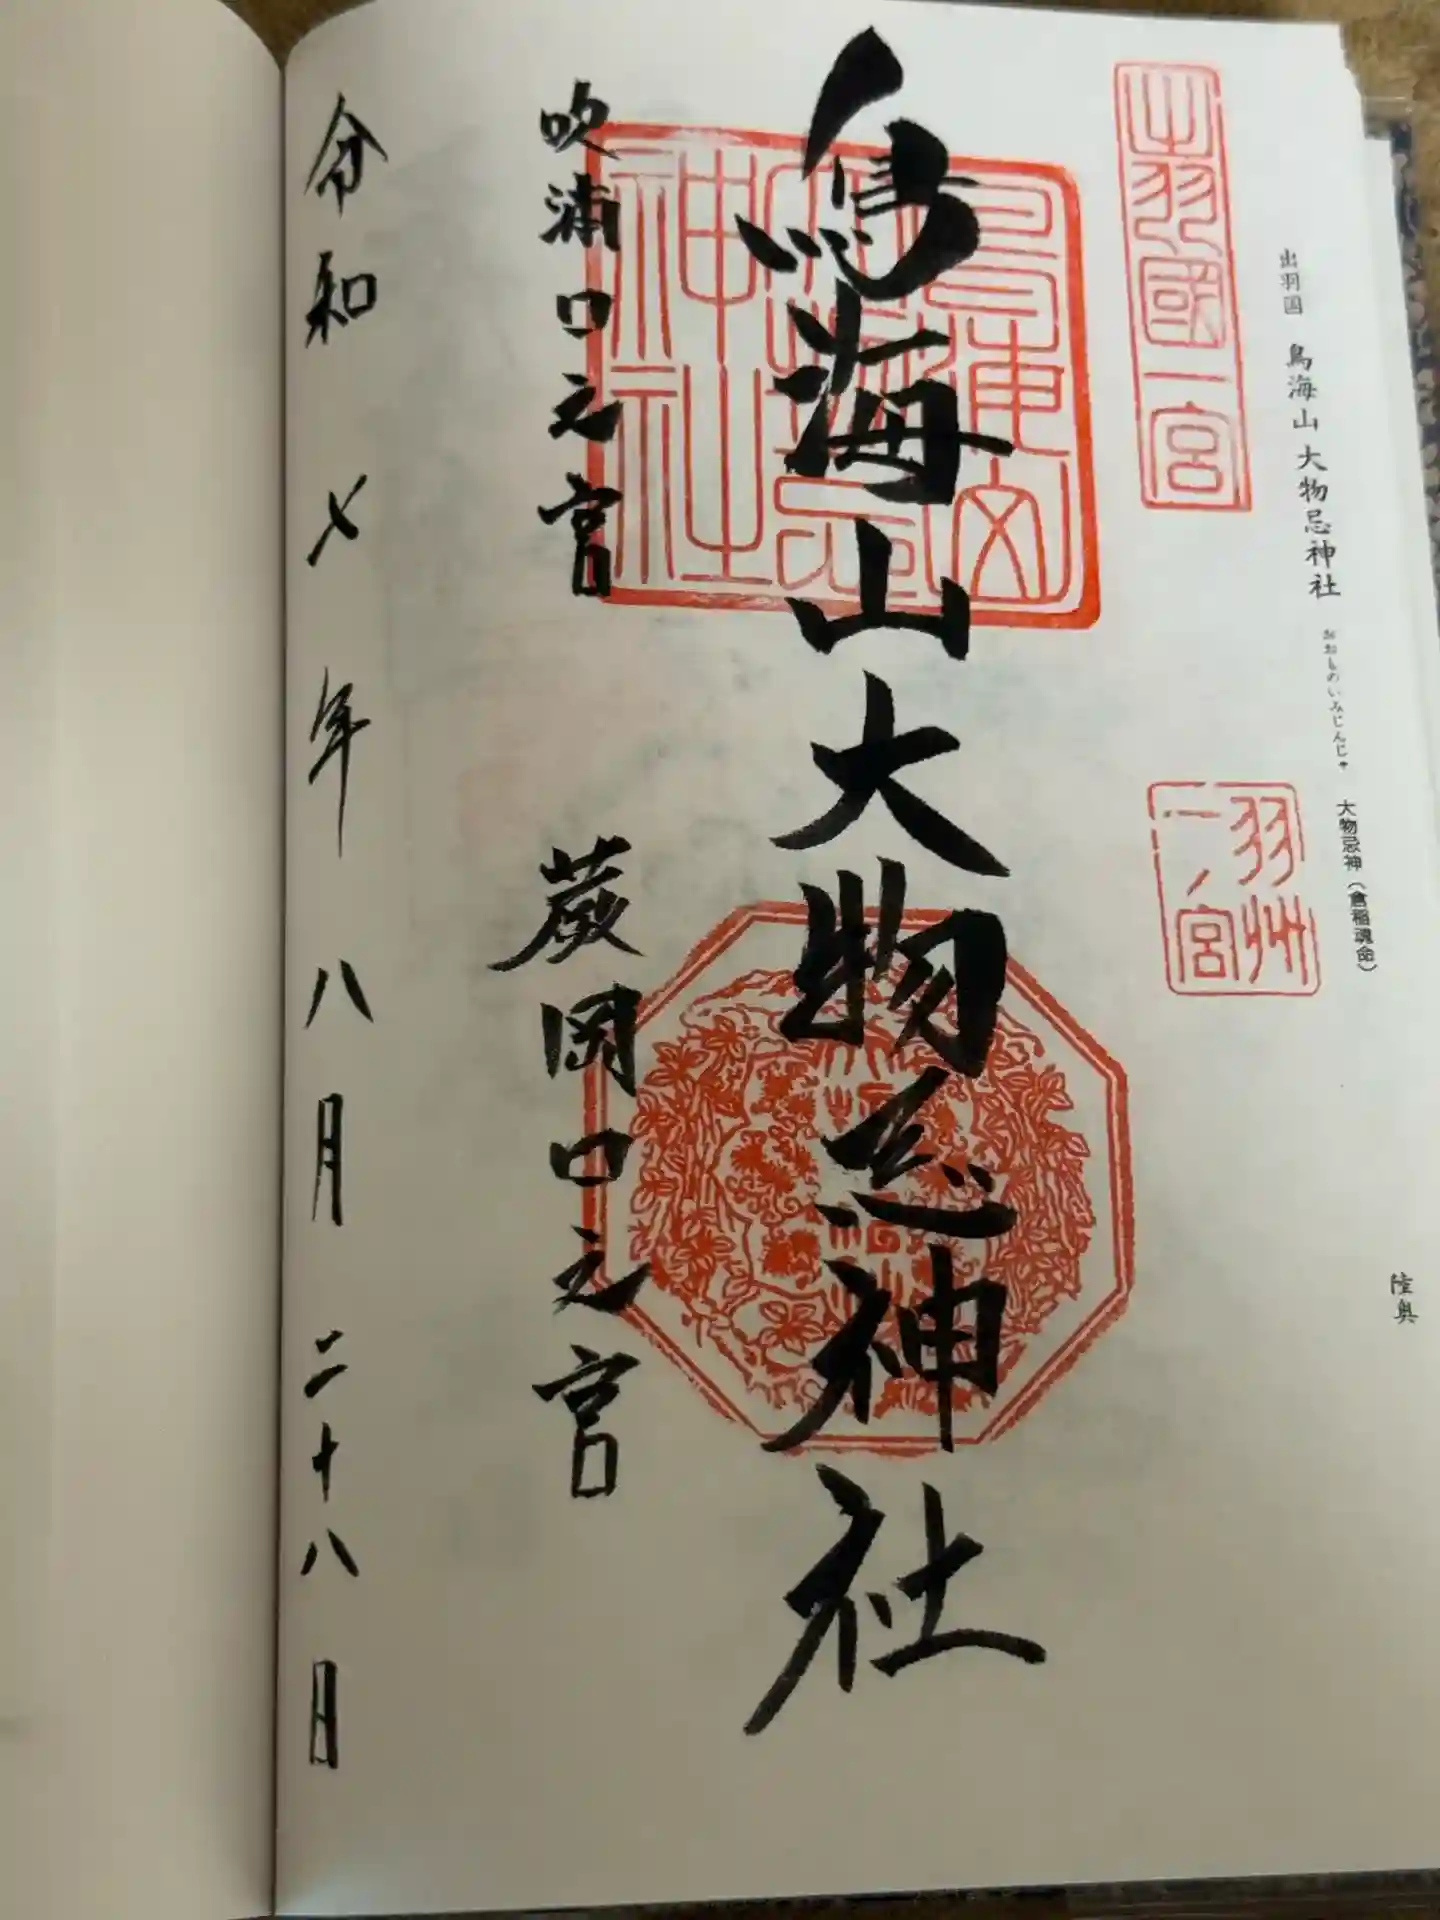 出羽国 鳥海山 大物忌神社 おおものいみじんじゃ 大物忌神(倉稲魂命)
陸奥
出羽國一宮
羽州
一ノ宮
鳥海山大物忌神社
吹浦口之宮
蕨岡口之宮
令和七年八月二十八日